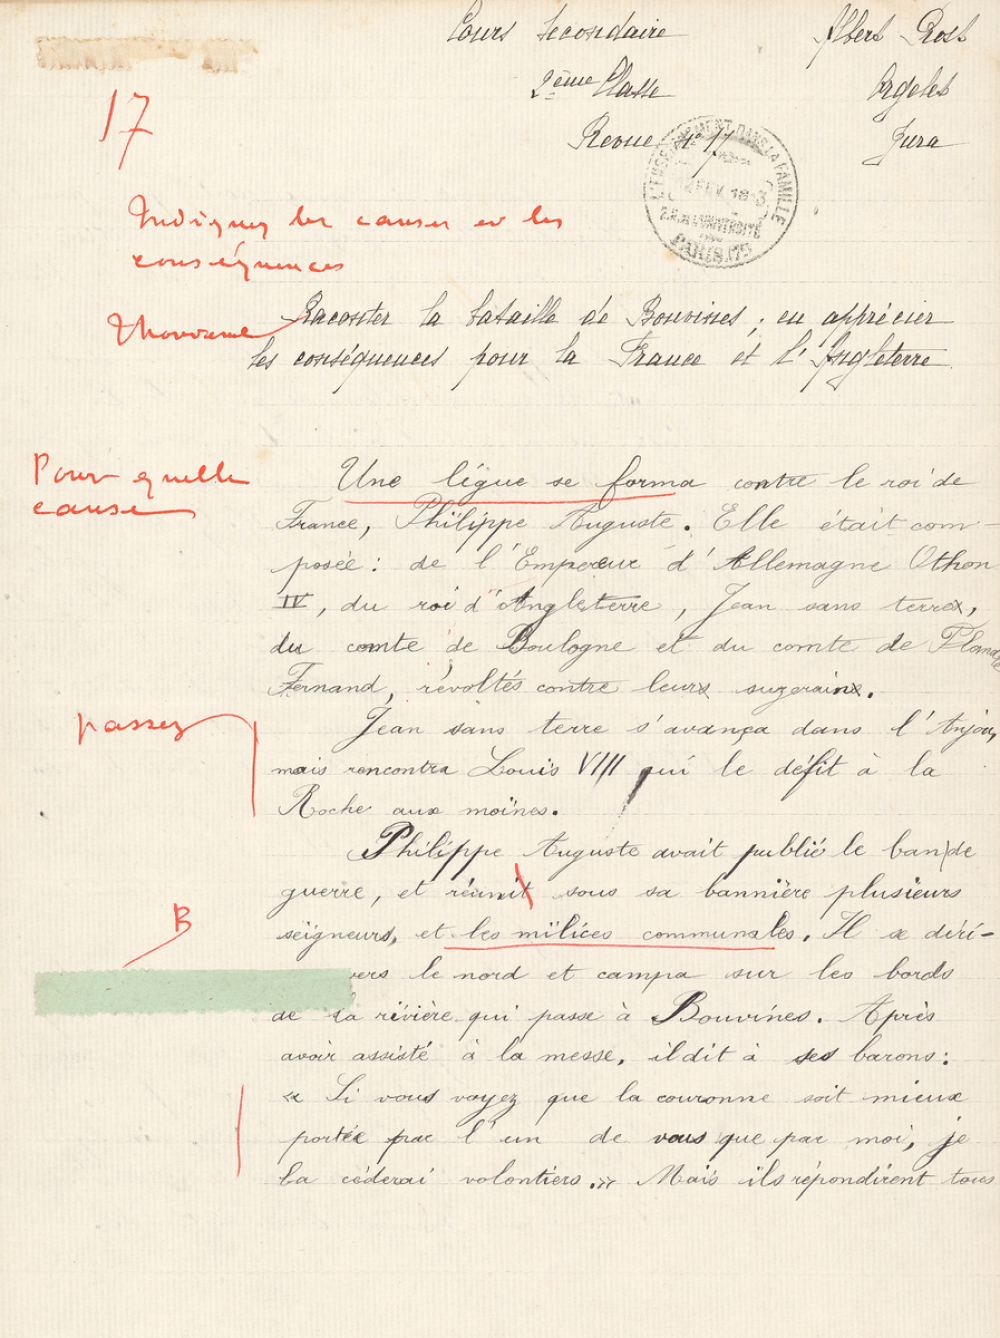 Cours Secondaire
Albert Prost
2ème Classe
Orgelet
Revue N° 17
Jura
17
L'ENSEIGNEMENT DANS LA FAMILLE
PARIS
Indiquez les causes et les
conséquences
Raconter la bataille de Bouvines ; en apprécier
les conséquences pour la France et l'Angleterre
Pour quelle
cause
Une ligue se forma contre le roi de
France, Philippe Auguste. Elle était com-
posée : de l'Empereur d'Allemagne Othon
IV, du roi d'Angleterre, Jean sans terre,
du comte de Boulogne et du comte de Flandre
Fernand, révoltés contre leur suzerain.
passez
Jean sans terre s'avança dans l'Anjou,
mais rencontra Louis VIII qui le défit à la
Roche aux moines.
Philippe Auguste avait publié le ban de
guerre, et réunit sous sa bannière plusieurs
B
seigneurs, et les milices communales. Il se diri-
vers le nord et campa sur les bords
de la rivière qui passe à Bouvines. Après
avoir assisté à la messe, il dit à ses barons :
« Si vous voyez que la couronne soit mieux
portée par l'un de vous que par moi, je
la céderai volontiers. » Mais ils répondirent tous